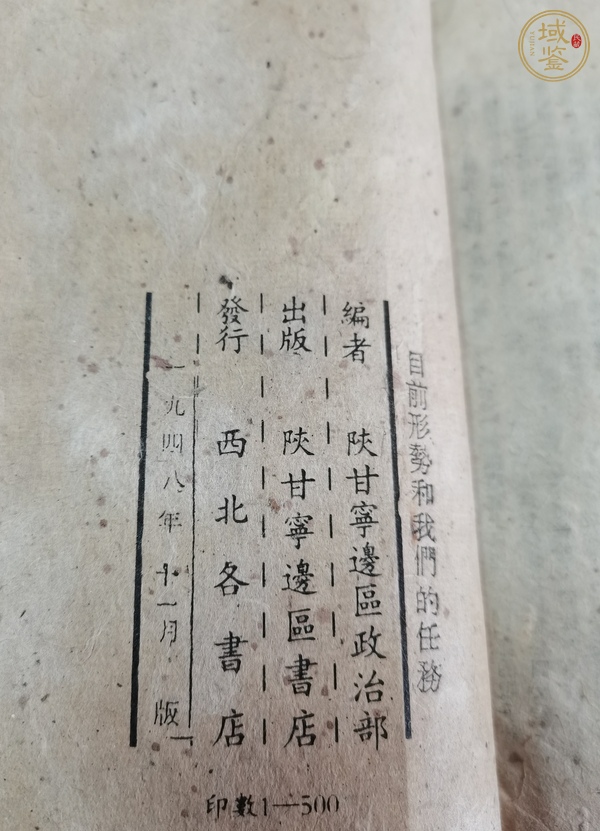 目前形勢和我們的任務
編者 陝甘寧邊區政治部
出版 陝甘寧邊區書店
發行 西北各書店
一九四八年十一月版
印數1—500
域鑒